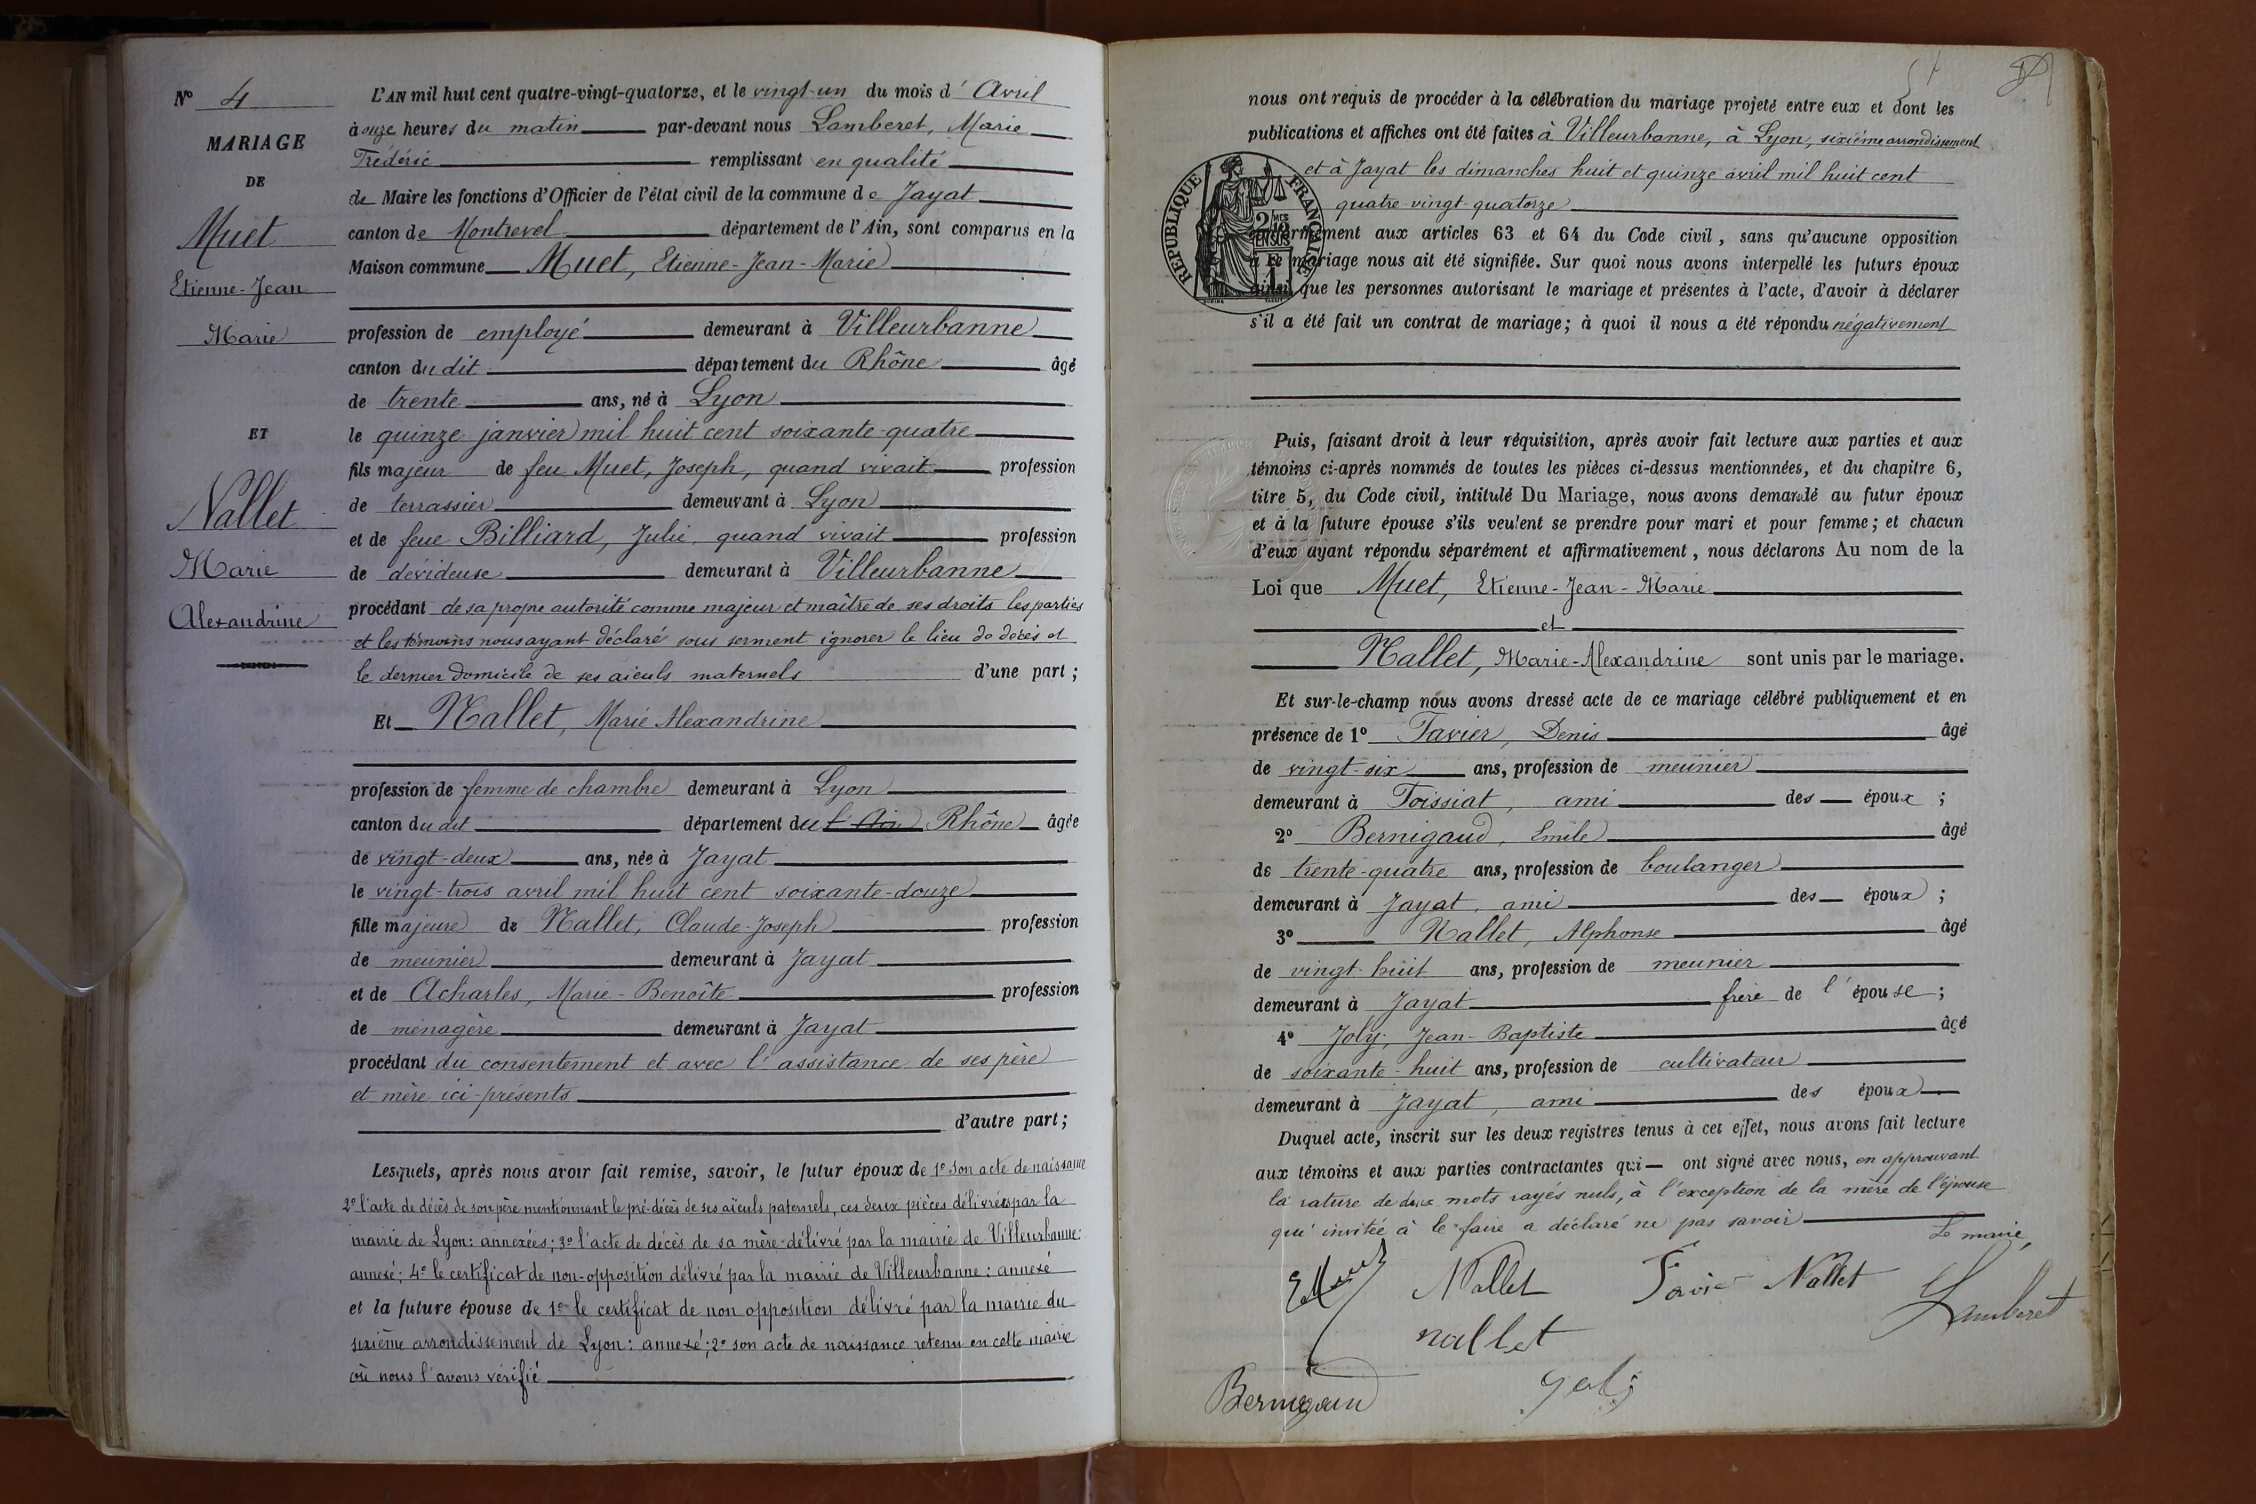 N° 4
MARIAGE
DE
Muet
Etienne-Jean
Marie
ET
Nallet
Marie
Alexandrine
L'AN mil huit cent quatre-vingt-quatorze, et le vingt-un du mois d'Avril
à onze heures du matin par-devant nous Lamberet, Marie
Frédéric remplissant en qualité
de Maire les fonctions d'Officier de l'état civil de la commune de Jayat
canton de Montrevel département de l'Ain, sont comparus en la
Maison commune Muet, Etienne-Jean-Marie
profession de employé demeurant à Villeurbanne
canton du dit département du Rhône âgé
de trente ans, né à Lyon
le quinze janvier mil huit cent soixante-quatre
fils majeur de feu Muet, Joseph, quand vivait profession
de terrassier demeurant à Lyon
et de feue Billiard, Julie, quand vivait profession
de dévideuse demeurant à Villeurbanne
procédant de sa propre autorité comme majeur et maître de ses droits les parties
et les témoins nous ayant déclaré sous serment ignorer le lieu de décès et
le dernier domicile de ses aïeuls maternels d'une part ;
Et Nallet, Marie Alexandrine
profession de femme de chambre demeurant à Lyon
canton du dit département du l'Ain Rhône âgée
de vingt-deux ans, née à Jayat
le vingt-trois avril mil huit cent soixante-douze
fille majeure de Nallet, Claude-Joseph profession
de meunier demeurant à Jayat
et de Acharles, Marie-Benoîte profession
de ménagère demeurant à Jayat
procédant du consentement et avec l'assistance de ses père
et mère ici présents
d'autre part ;
Lesquels, après nous avoir fait remise, savoir, le futur époux de 1° son acte de naissance
2° l'acte de décès de son père mentionnant le pré-décès de ses aïeuls paternels, ces deux pièces délivrées par la
mairie de Lyon : annexées ; 3° l'acte de décès de sa mère délivré par la mairie de Villeurbanne :
annexé ; 4° le certificat de non-opposition délivré par la mairie de Villeurbanne : annexé
et la future épouse de 1° le certificat de non opposition délivré par la mairie du
sixième arrondissement de Lyon : annexé ; 2° son acte de naissance retenu en cette mairie
où nous l'avons vérifié
nous ont requis de procéder à la célébration du mariage projeté entre eux et dont les
publications et affiches ont été faites à Villeurbanne, à Lyon, sixième arrondissement
et à Jayat les dimanches huit et quinze avril mil huit cent
quatre-vingt-quatorze
REPUBLIQUE FRANÇAISE
conformément aux articles 63 et 64 du Code civil, sans qu'aucune opposition
à ce mariage nous ait été signifiée. Sur quoi nous avons interpellé les futurs époux
ainsi que les personnes autorisant le mariage et présentes à l'acte, d'avoir à déclarer
s'il a été fait un contrat de mariage ; à quoi il nous a été répondu négativement
Puis, faisant droit à leur réquisition, après avoir fait lecture aux parties et aux
témoins ci-après nommés de toutes les pièces ci-dessus mentionnées, et du chapitre 6,
titre 5, du Code civil, intitulé Du Mariage, nous avons demandé au futur époux
et à la future épouse s'ils veulent se prendre pour mari et pour femme ; et chacun
d'eux ayant répondu séparément et affirmativement, nous déclarons Au nom de la
Loi que Muet, Etienne-Jean-Marie
et
Nallet, Marie-Alexandrine sont unis par le mariage.
Et sur-le-champ nous avons dressé acte de ce mariage célébré publiquement et en
présence de 1° Favier, Denis âgé
de vingt-six ans, profession de meunier
demeurant à Foissiat, ami des époux ;
2° Bernigaud, Emile âgé
de trente-quatre ans, profession de boulanger
demeurant à Jayat, ami des époux ;
3° Nallet, Alphonse âgé
de vingt-huit ans, profession de meunier
demeurant à Jayat frère de l'épouse ;
4° Joly, Jean-Baptiste âgé
de soixante-huit ans, profession de cultivateur
demeurant à Jayat, ami des époux
Duquel acte, inscrit sur les deux registres tenus à cet effet, nous avons fait lecture
aux témoins et aux parties contractantes qui ont signé avec nous, en approuvant
la rature de deux mots rayés nuls, à l'exception de la mère de l'épouse
qui invitée à le faire a déclaré ne pas savoir
Le maire,
Nallet Favier Nallet
Lamberet
nallet
Bernigaud Joly